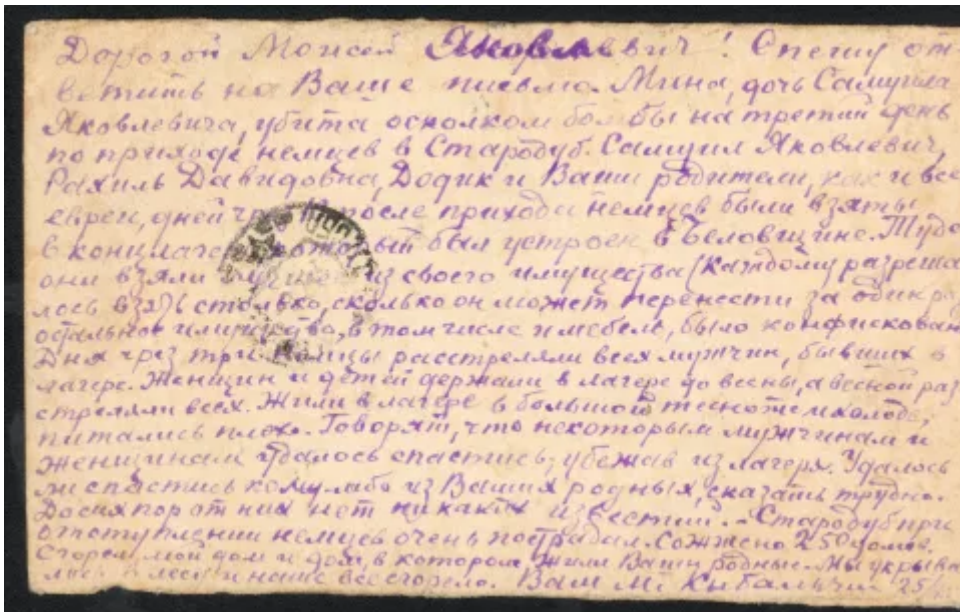 Дорогой Моисей Яковлевич! Спешу от-
ветить на Ваше письмо. Мина, дочь Самуила
Яковлевича, убита осколком бомбы на третий день
по приходе немцев в Стародуб. Самуил Яковлевич,
Рахиль Давидовна, Додик и Ваши родители, как и все
евреи, дней после прихода немцев были взяты
в концлагерь, который был устроен в Беловщине. Туда
они взяли лучшее из своего имущества (каждому разреша
лось взять столько, сколько он может перенести за один раз
остальное имущество, в том числе и мебель, было конфискован
Дня чрез три немцы расстреляли всех мужчин, бывших в
лагере. Женщин и детей держали в лагере до весны, а весной рас
стреляли всех. Жили в лагере в большой тесноте и холоде,
питались плохо. Говорят, что некоторым мужчинам и
женщинам удалось спастись, убежав из лагеря. Удалось
ли спастись кому либо из Ваших родных, сказать трудно.
До сих пор от них нет никаких известий. - Стародуб при
отступлении немцев очень пострадал. Сожжено 250 домов.
Сгорел мой дом и дом, в котором жили Ваши родные. Мы укрыва
лись в лесу и наше все сгорело. Ваш М. Кибальчич 25/